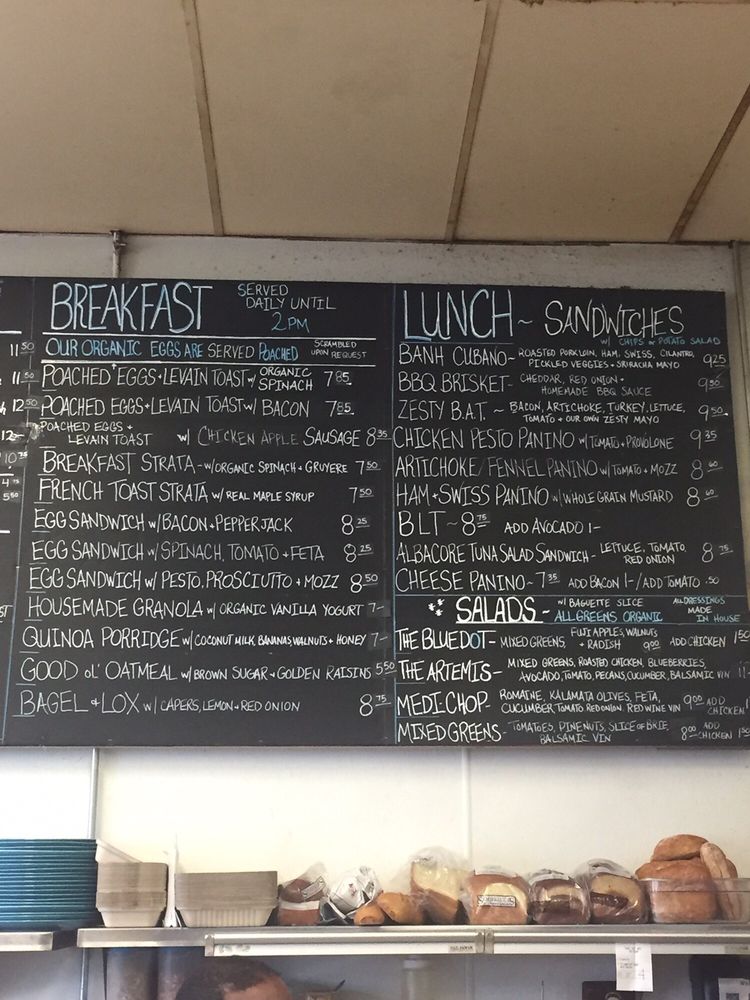 BREAKFAST SERVED DAILY UNTIL 2PM
OUR ORGANIC EGGS ARE SERVED POACHED SCRAMBLED UPON REQUEST
POACHED EGGS + LEVAIN TOAST w/ ORGANIC SPINACH 7 85
POACHED EGGS + LEVAIN TOAST w/ BACON 7 85
POACHED EGGS + LEVAIN TOAST w/ CHICKEN APPLE SAUSAGE 8 35
BREAKFAST STRATA - w/ ORGANIC SPINACH + GRUYERE 7 50
FRENCH TOAST STRATA w/ REAL MAPLE SYRUP 7 50
EGG SANDWICH w/ BACON + PEPPERJACK 8 25
EGG SANDWICH w/ SPINACH, TOMATO + FETA 8 25
EGG SANDWICH w/ PESTO, PROSCIUTTO + MOZZ 8 50
HOUSEMADE GRANOLA w/ ORGANIC VANILLA YOGURT 7-
QUINOA PORRIDGE w/ COCONUT MILK, BANANAS, WALNUTS + HONEY 7-
GOOD OL' OATMEAL w/ BROWN SUGAR + GOLDEN RAISINS 5 50
BAGEL + LOX w/ CAPERS, LEMON + RED ONION 8 75
LUNCH ~ SANDWICHES
w/ CHIPS or POTATO SALAD
BANH CUBANO - ROASTED PORK LOIN, HAM, SWISS, CILANTRO,
PICKLED VEGGIES + SRIRACHA MAYO 9 25
BBQ BRISKET - CHEDDAR, RED ONION +
HOMEMADE BBQ SAUCE 9 50
ZESTY B.A.T. ~ BACON, ARTICHOKE, TURKEY, LETTUCE,
TOMATO + OUR OWN ZESTY MAYO 9 50
CHICKEN PESTO PANINO w/ TOMATO + PROVOLONE 9 35
ARTICHOKE/FENNEL PANINO w/ TOMATO + MOZZ 8 60
HAM + SWISS PANINO w/ WHOLE GRAIN MUSTARD 8 60
BLT ~ 8 75 ADD AVOCADO 1-
ALBACORE TUNA SALAD SANDWICH - LETTUCE, TOMATO,
RED ONION 8 75
CHEESE PANINO ~ 7 35 ADD BACON 1- / ADD TOMATO .50
SALADS - w/ BAGUETTE SLICE
ALL GREENS ORGANIC
ALL DRESSINGS MADE IN HOUSE
THE BLUE DOT - MIXED GREENS, FUJI APPLES, WALNUTS
+ RADISH 9 00 ADD CHICKEN 1 50
THE ARTEMIS - MIXED GREENS, ROASTED CHICKEN, BLUEBERRIES,
AVOCADO, TOMATO, PECANS, CUCUMBER, BALSAMIC VIN 11-
MEDI-CHOP - ROMAINE, KALAMATA OLIVES, FETA,
CUCUMBER, TOMATO, RED ONION, RED WINE VIN 9 00 ADD CHICKEN
MIXED GREENS - TOMATOES, PINENUTS, SLICE OF BRIE,
BALSAMIC VIN 8 00 ADD CHICKEN 1 50
11 50
11 50
12 50
12-
10 75
4 75
5 50